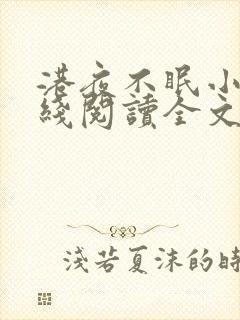 港夜不眠小
綫閱讀全文
淺若夏沫的時